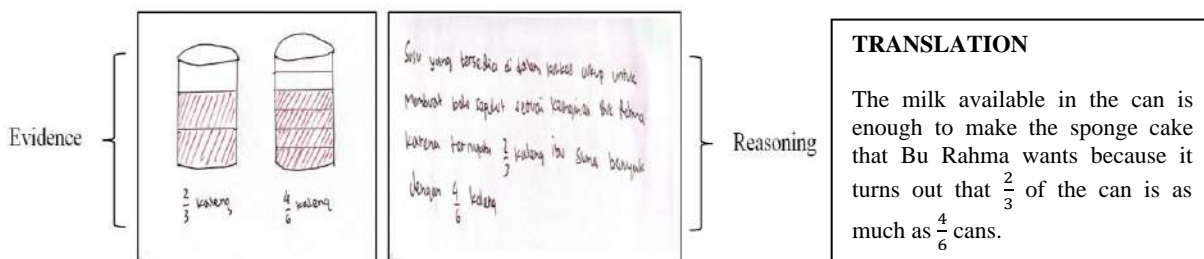 Evidence
2/3 kaleng
4/6 kaleng
Susu yang tersedia di dalam cukup untuk
membuat bolu sesuai keinginan Bu Rahma
karena ternyata 2/3 kaleng itu sama banyak
dengan 4/6 kaleng
Reasoning
TRANSLATION
The milk available in the can is
enough to make the sponge cake
that Bu Rahma wants because it
turns out that 2/3 of the can is as
much as 4/6 cans.